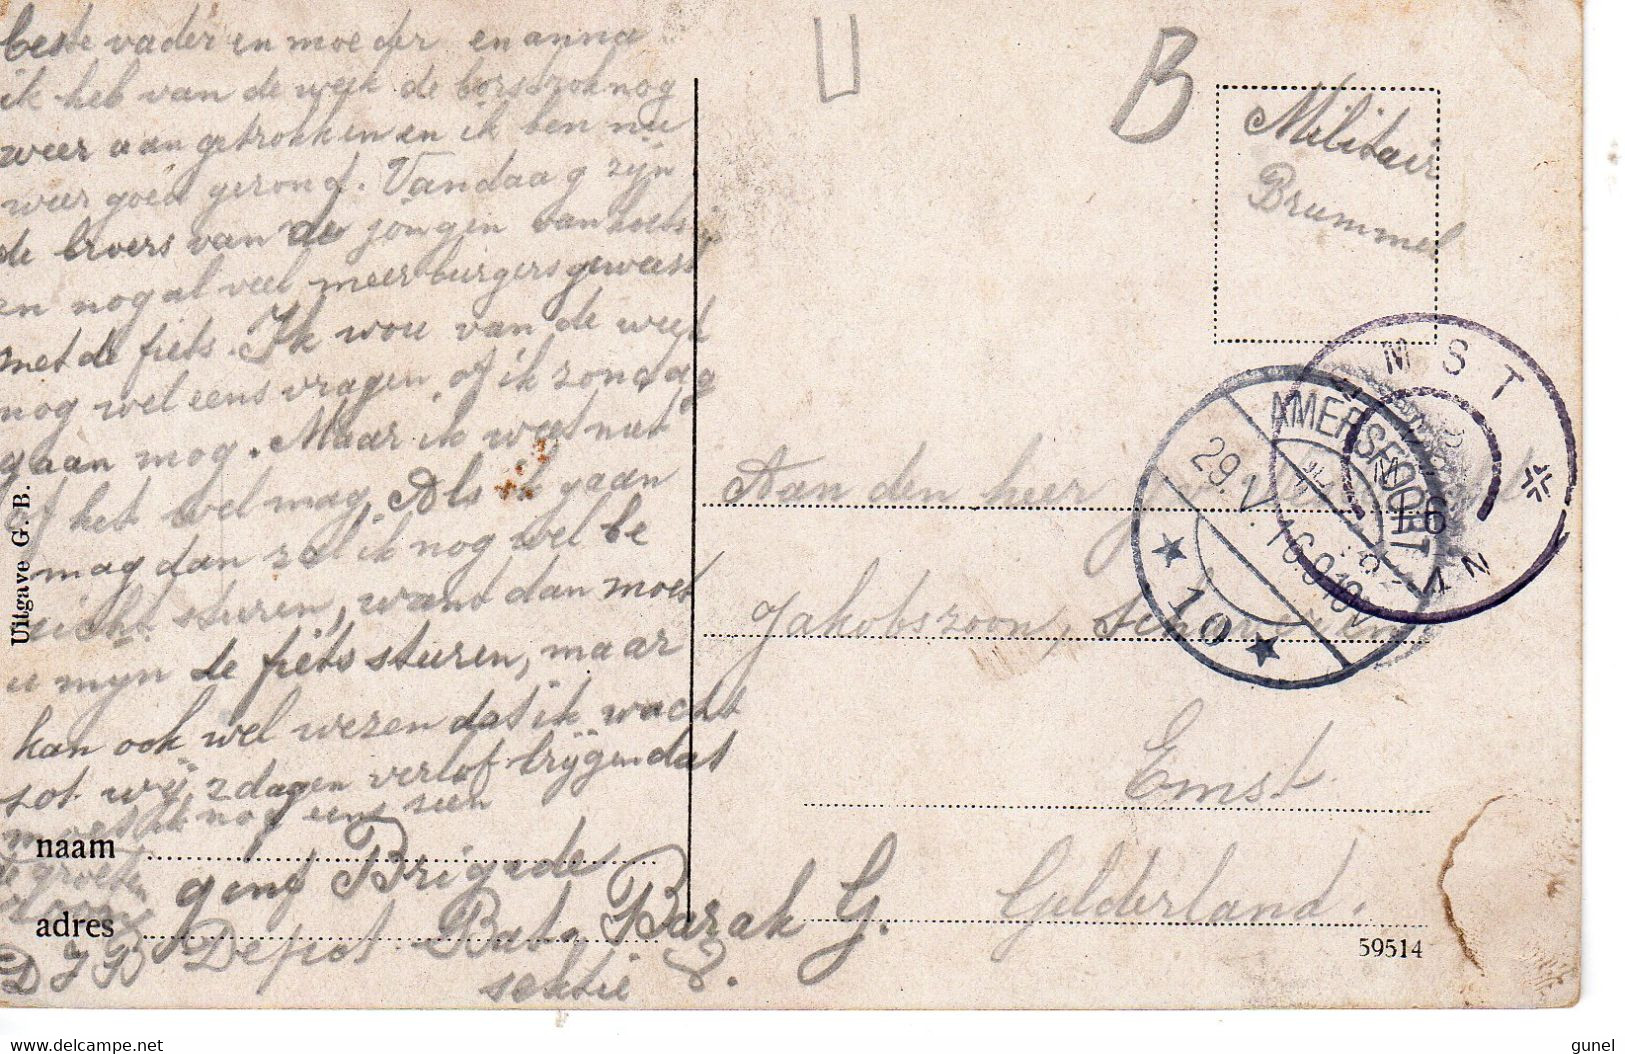 beste vader en moeder en anna
ik heb van de week de borstrok nog
weer aangetrokken en ik ben nu
weer goed gezond. Vandaag zijn
de broers van de jongen van
en nog al veel meer burgers geweest
met de fiets. Ik wou van de week
nog wel eens vragen of ik zondag
gaan mog. Maar ik weet niet
of het wel mag. Als ik gaan
mag dan zal ik nog wel be
richt sturen, want dan moet
u mijn de fiets sturen, maar
kan ook wel wezen dat ik wacht
tot wij 2 dagen verlof krijgen dat
moet ik nog eens zien
de groeten
naam
genf Brigade
adres
D J B Depot Bat Barak G.
sektie 2.
Uitgave G. B.
U
B
Militair
Brummel
EMST
AMERSFOORT
29.V 16 9 19
★ 10 ★
Aan den heer
Jakobszoon,
Emst
Gelderland.
59514
delcampe.net
gunel